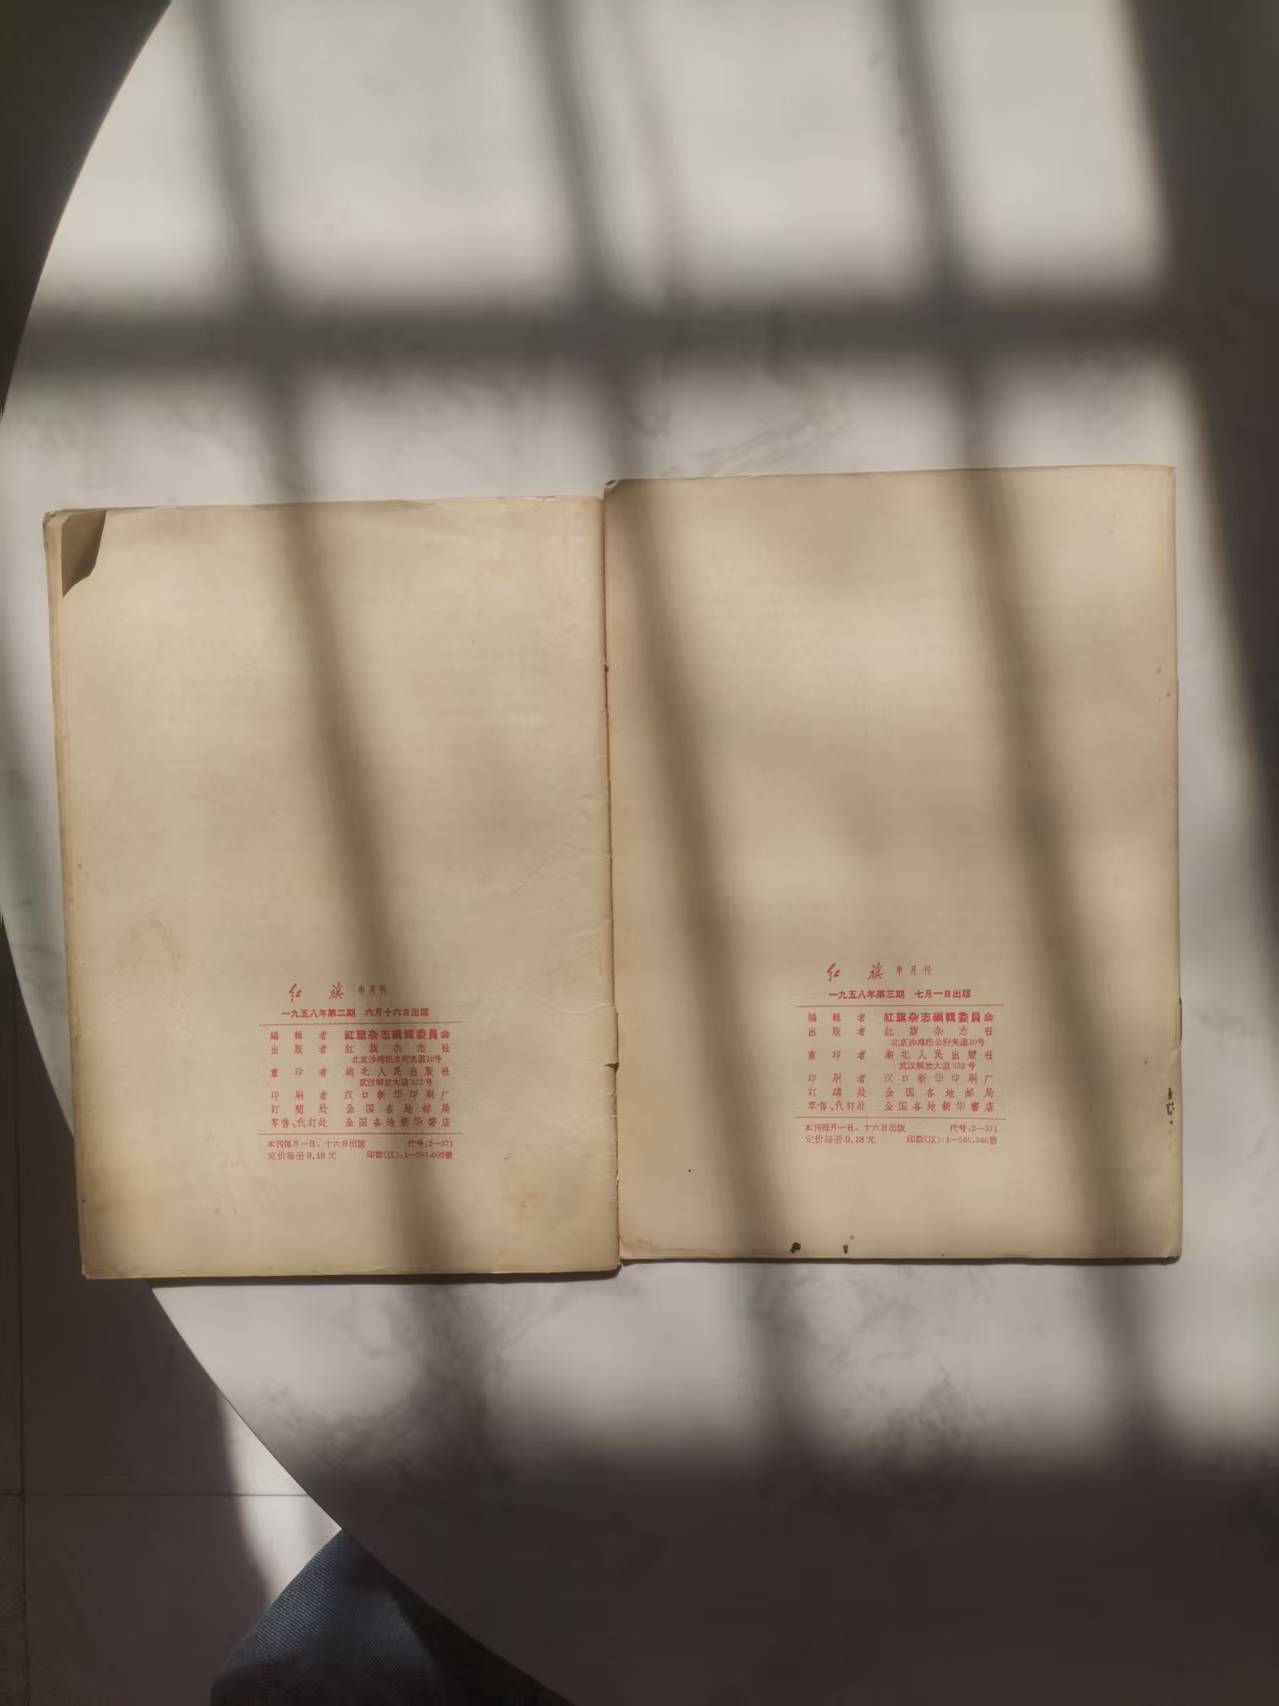 红旗 半月刊
一九五八年第二期 六月十六日出版
編輯者 紅旗杂志編輯委員会
出版者 紅旗杂志社
北京沙滩松公府夹道10号
重印者 湖北人民出版社
武汉解放大道332号
印刷者 汉口新华印刷厂
訂閱处 全国各地邮局
零售、代訂处 全国各地新华書店
本刊每月一日、十六日出版 代号:2—371
定价每册0.18元 印数(汉):
红旗 半月刊
一九五八年第三期 七月一日出版
編輯者 紅旗杂志編輯委員会
出版者 紅旗杂志社
北京沙滩松公府夹道10号
重印者 湖北人民出版社
武汉解放大道332号
印刷者 汉口新华印刷厂
訂購处 全国各地邮局
零售、代訂处 全国各地新华書店
本刊每月一日、十六日出版 代号:2—371
定价每册0.18元 印数(汉):